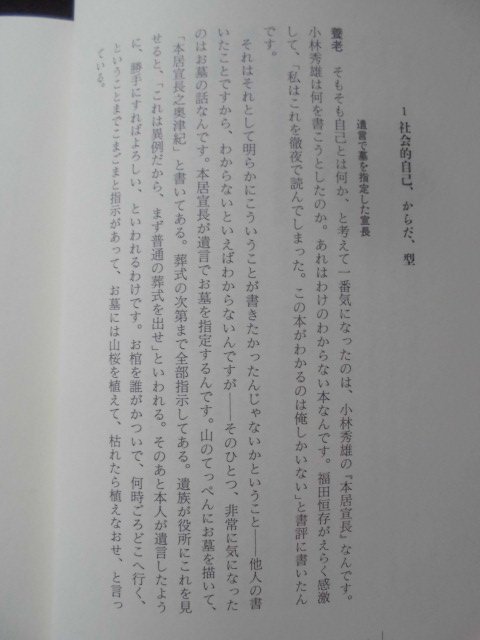 1 社会的自己、からだ、型
遺言で墓を指定した宣長
養老 そもそも自己とは何か、と考えて一番気になったのは、小林秀雄の『本居宣長』なんです。
小林秀雄は何を書こうとしたのか。あれはわけのわからない本なんです。福田恒存がえらく感激
して、「私はこれを徹夜で読んでしまった。この本がわかるのは俺しかいない」と書評に書いたん
です。
それはそれとして明らかにこういうことが書きたかったんじゃないかということ――他人の書
いたことですから、わからないといえばわからないんですが――そのひとつ、非常に気になった
のはお墓の話なんです。本居宣長が遺言でお墓を指定するんです。山のてっぺんにお墓を描いて、
「本居宣長之奥津紀」と書いてある。葬式の次第まで全部指示してある。遺族が役所にこれを見
せると、「これは異例だから、まず普通の葬式を出せ」といわれる。そのあと本人が遺言したよう
に、勝手にすればよろしい、といわれるわけです。お棺を誰がかついで、何時ごろどこへ行く、
ということまでこまごまと指示があって、お墓には山桜を植えて、枯れたら植えなおせ、と言っ
ている。